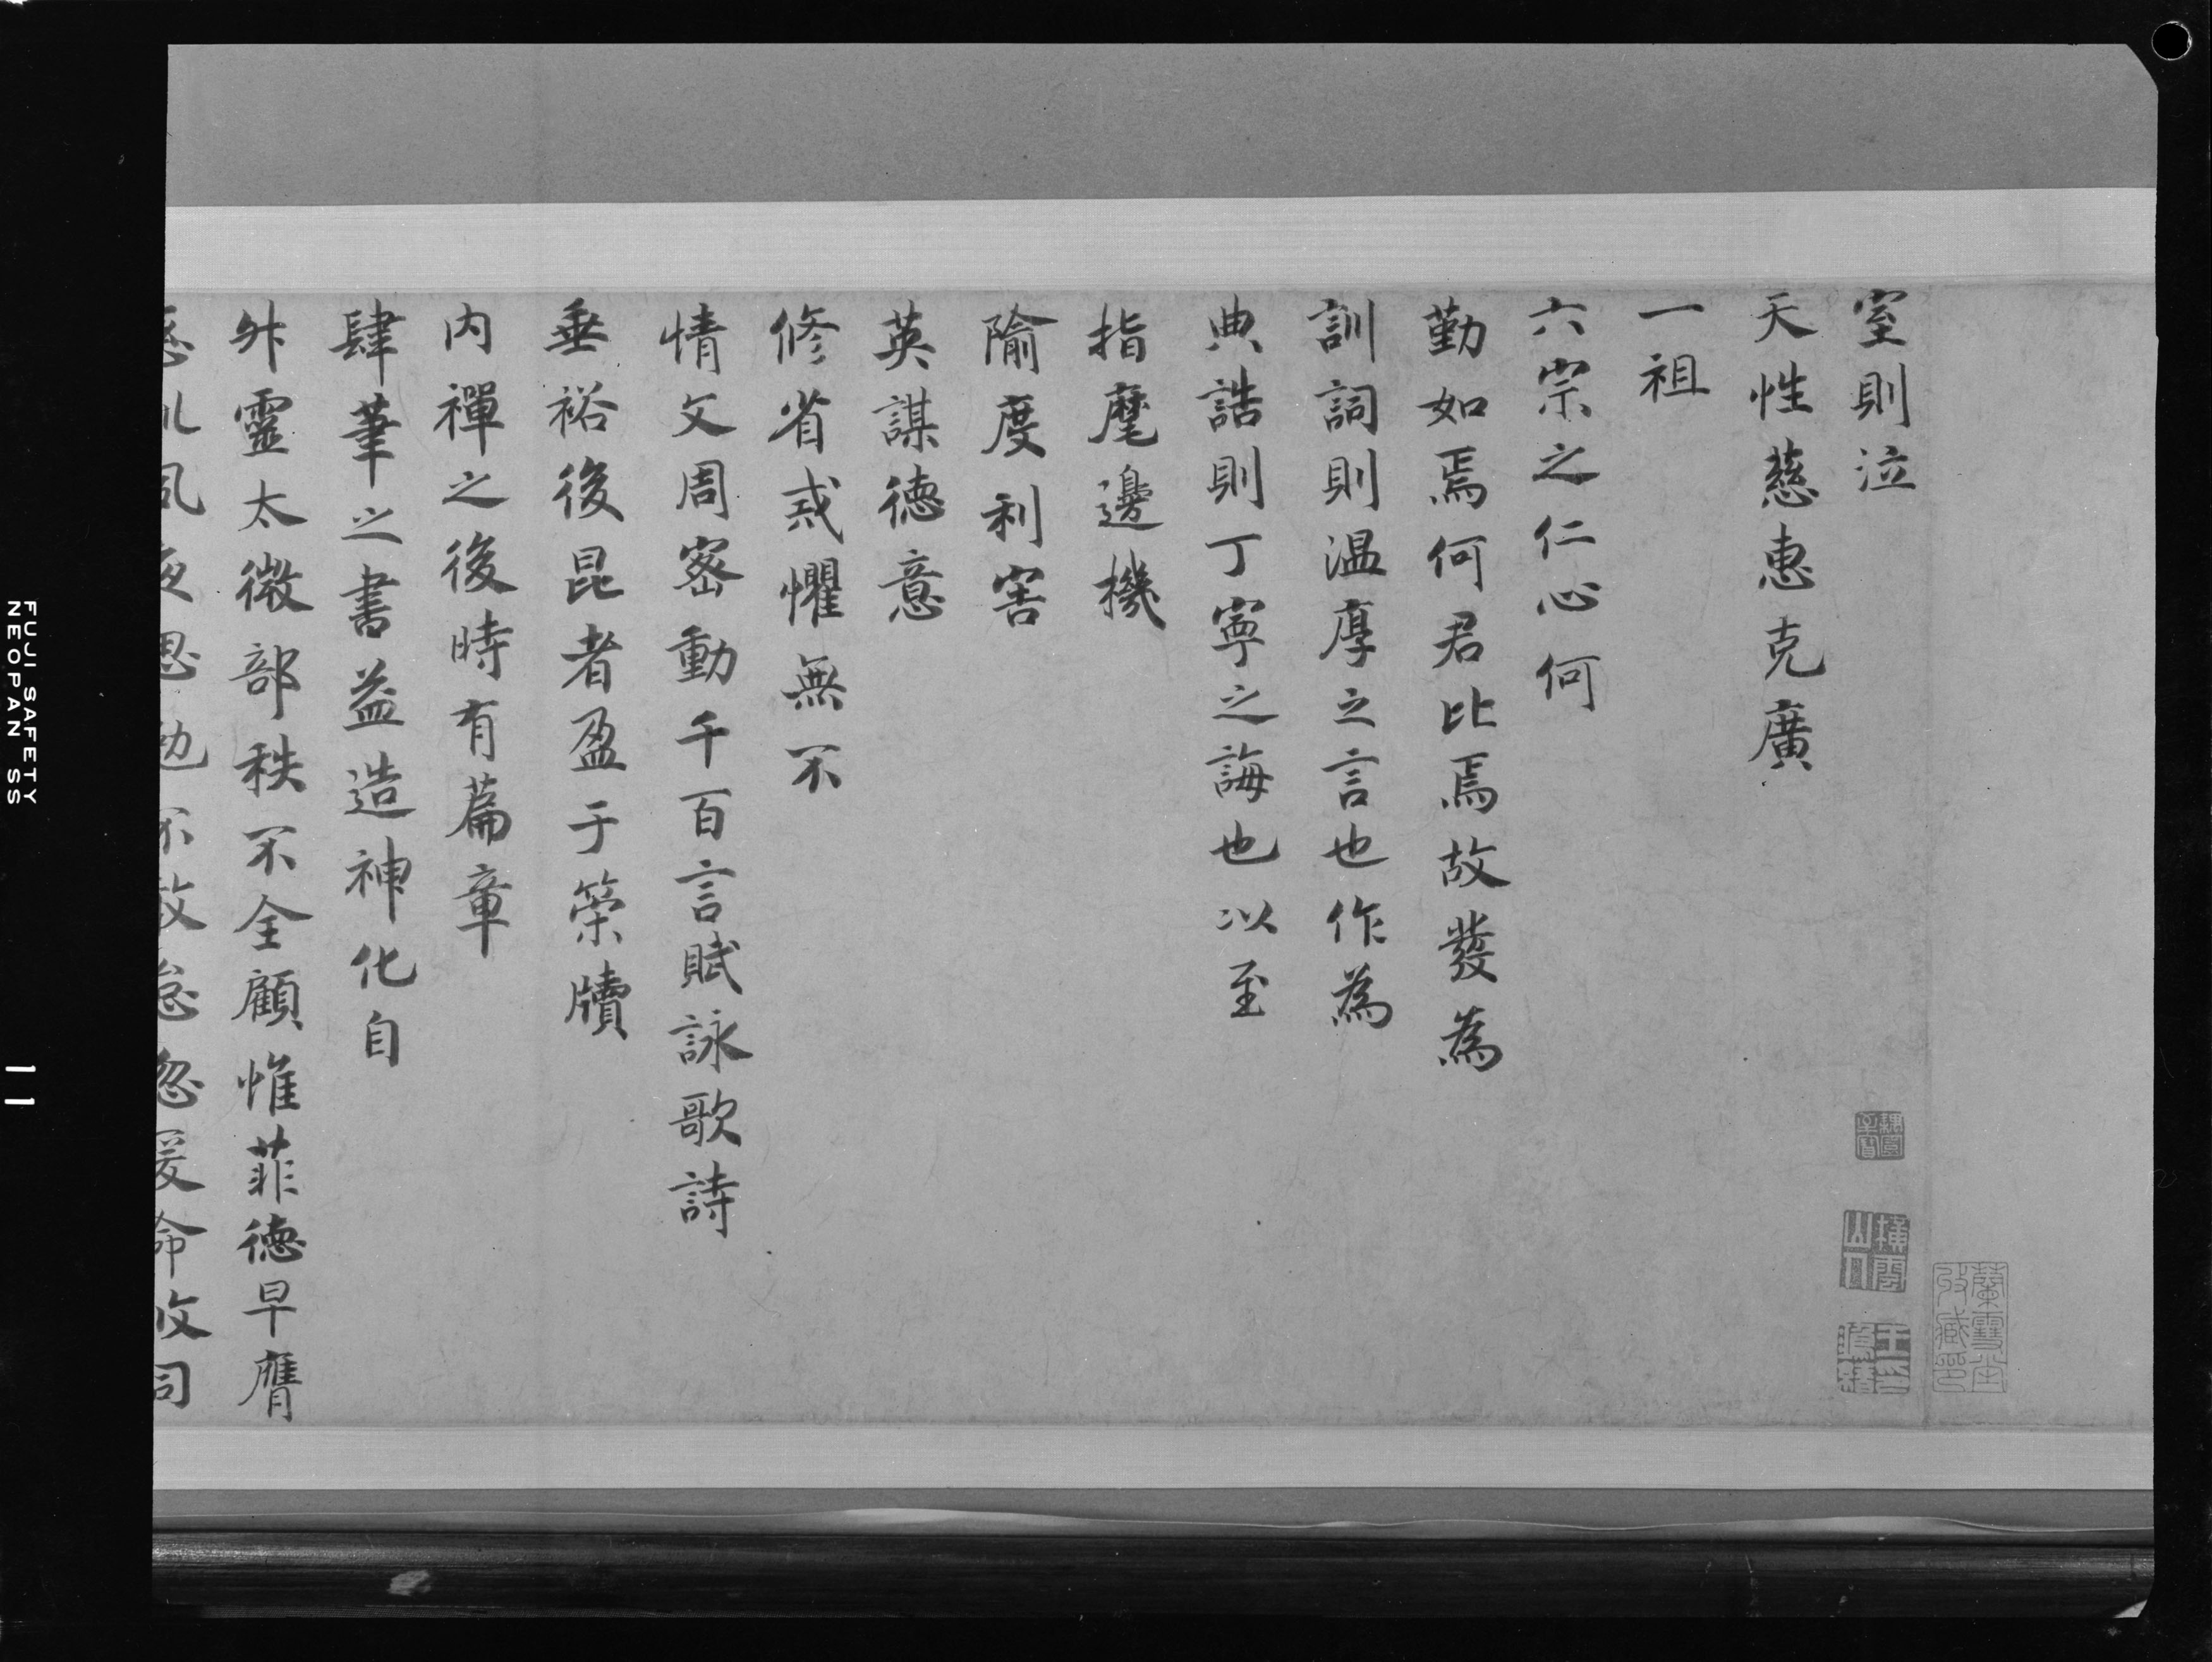 室則泣
天性慈惠克廣
一祖
六宗之仁心何
勤如焉何君比焉故發為
訓詞則温厚之言也作為
典誥則丁寧之誨也以至
指麾邊機
隃度利害
英謀德意
修省戒懼無不
情文周密動千百言賦詠歌詩
垂裕後昆者盈于榮牘
内禪之後時有篇章
肆筆之書益造神化自
外靈太微部秩不全顧惟菲德早膺
夜思 不敢怠忽爰命攸司
蘭雪堂收藏印
FUJI SAFETY
NEOPAN SS